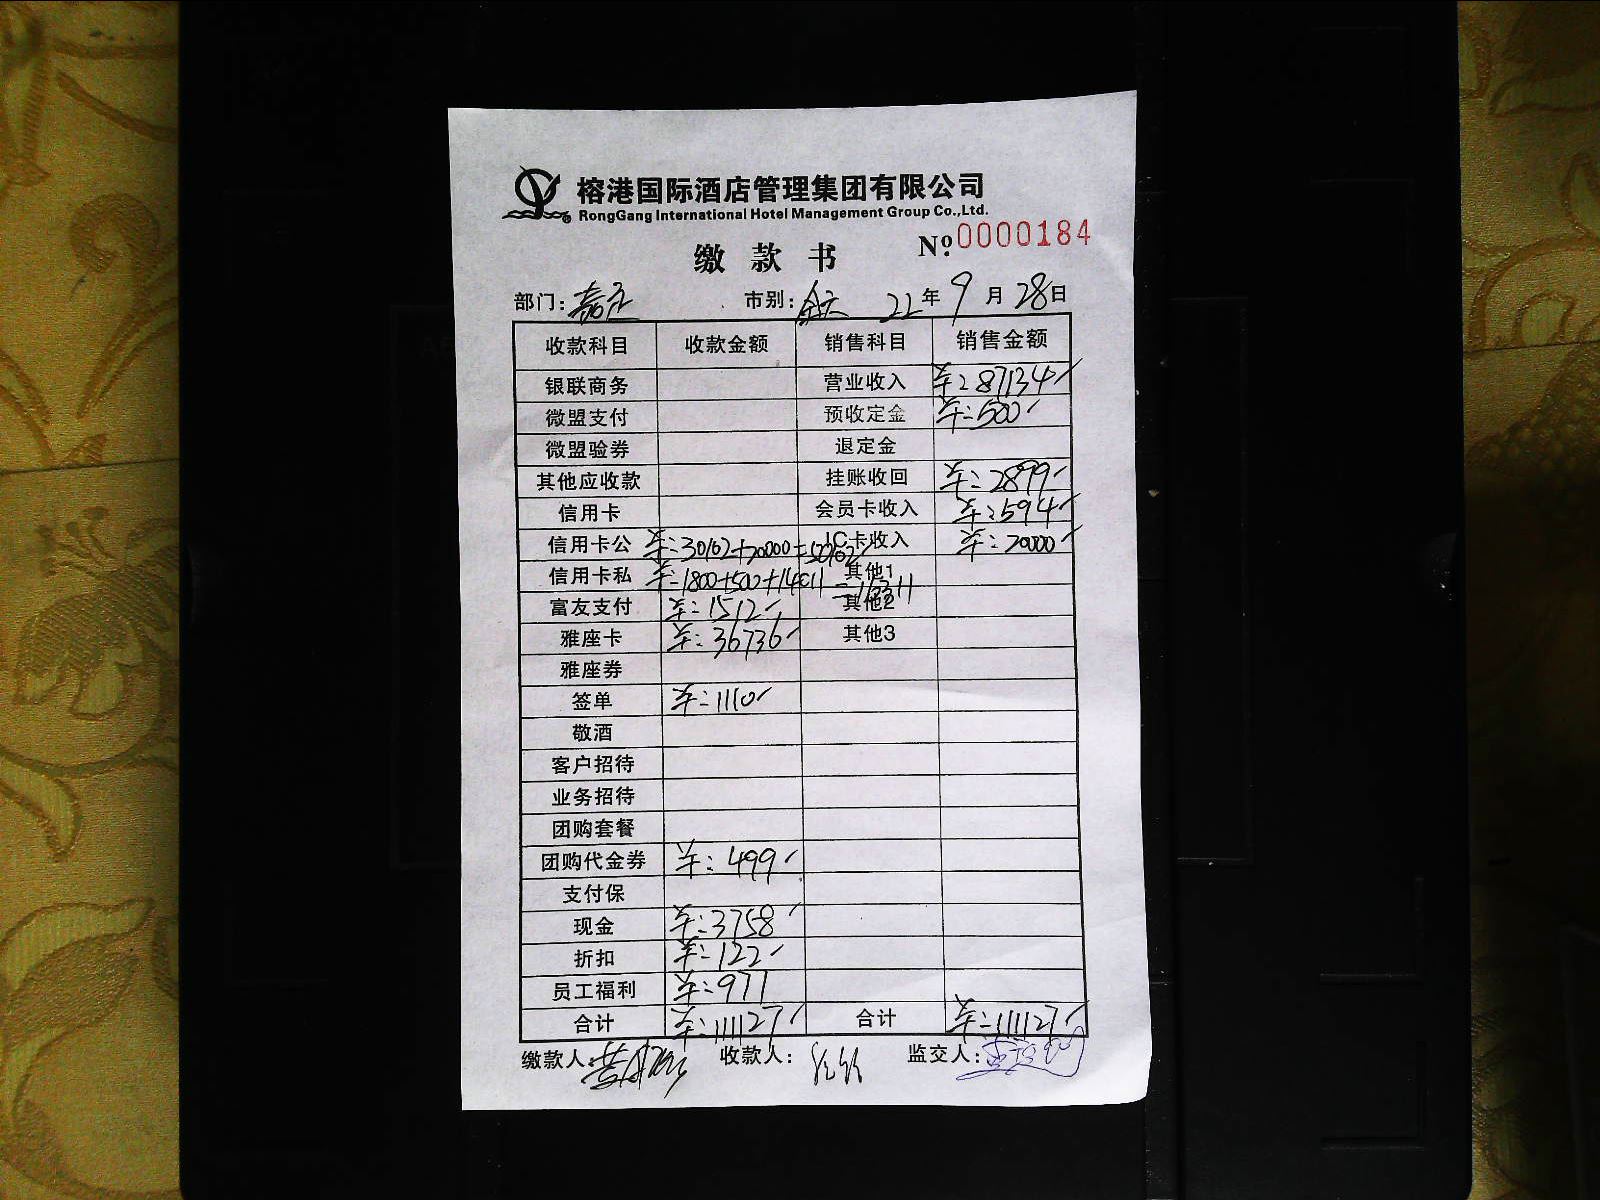 榕港国际酒店管理集团有限公司
RongGang International Hotel Management Group Co.,Ltd.
缴款书 №:0000184
部门:嘉定 市别:全天 22年9月28日
收款科目 收款金额 销售科目 销售金额
银联商务 营业收入 ¥:87134
微盟支付 预收定金 ¥:500
微盟验券 退定金
其他应收款 挂账收回 ¥:2899
信用卡 会员卡收入 ¥:594
信用卡公 ¥:30102+20000=50102 IC卡收入 ¥:20000
信用卡私 ¥:1800+500+14011=16311 其他1
富友支付 ¥:1512 其他2
雅座卡 ¥:36736 其他3
雅座券
签单 ¥:1110
敬酒
客户招待
业务招待
团购套餐
团购代金券 ¥:499
支付保
现金 ¥:3758
折扣 ¥:122
员工福利 ¥:977
合计 ¥:111127 合计 ¥:111127
缴款人: 收款人: 监交人: